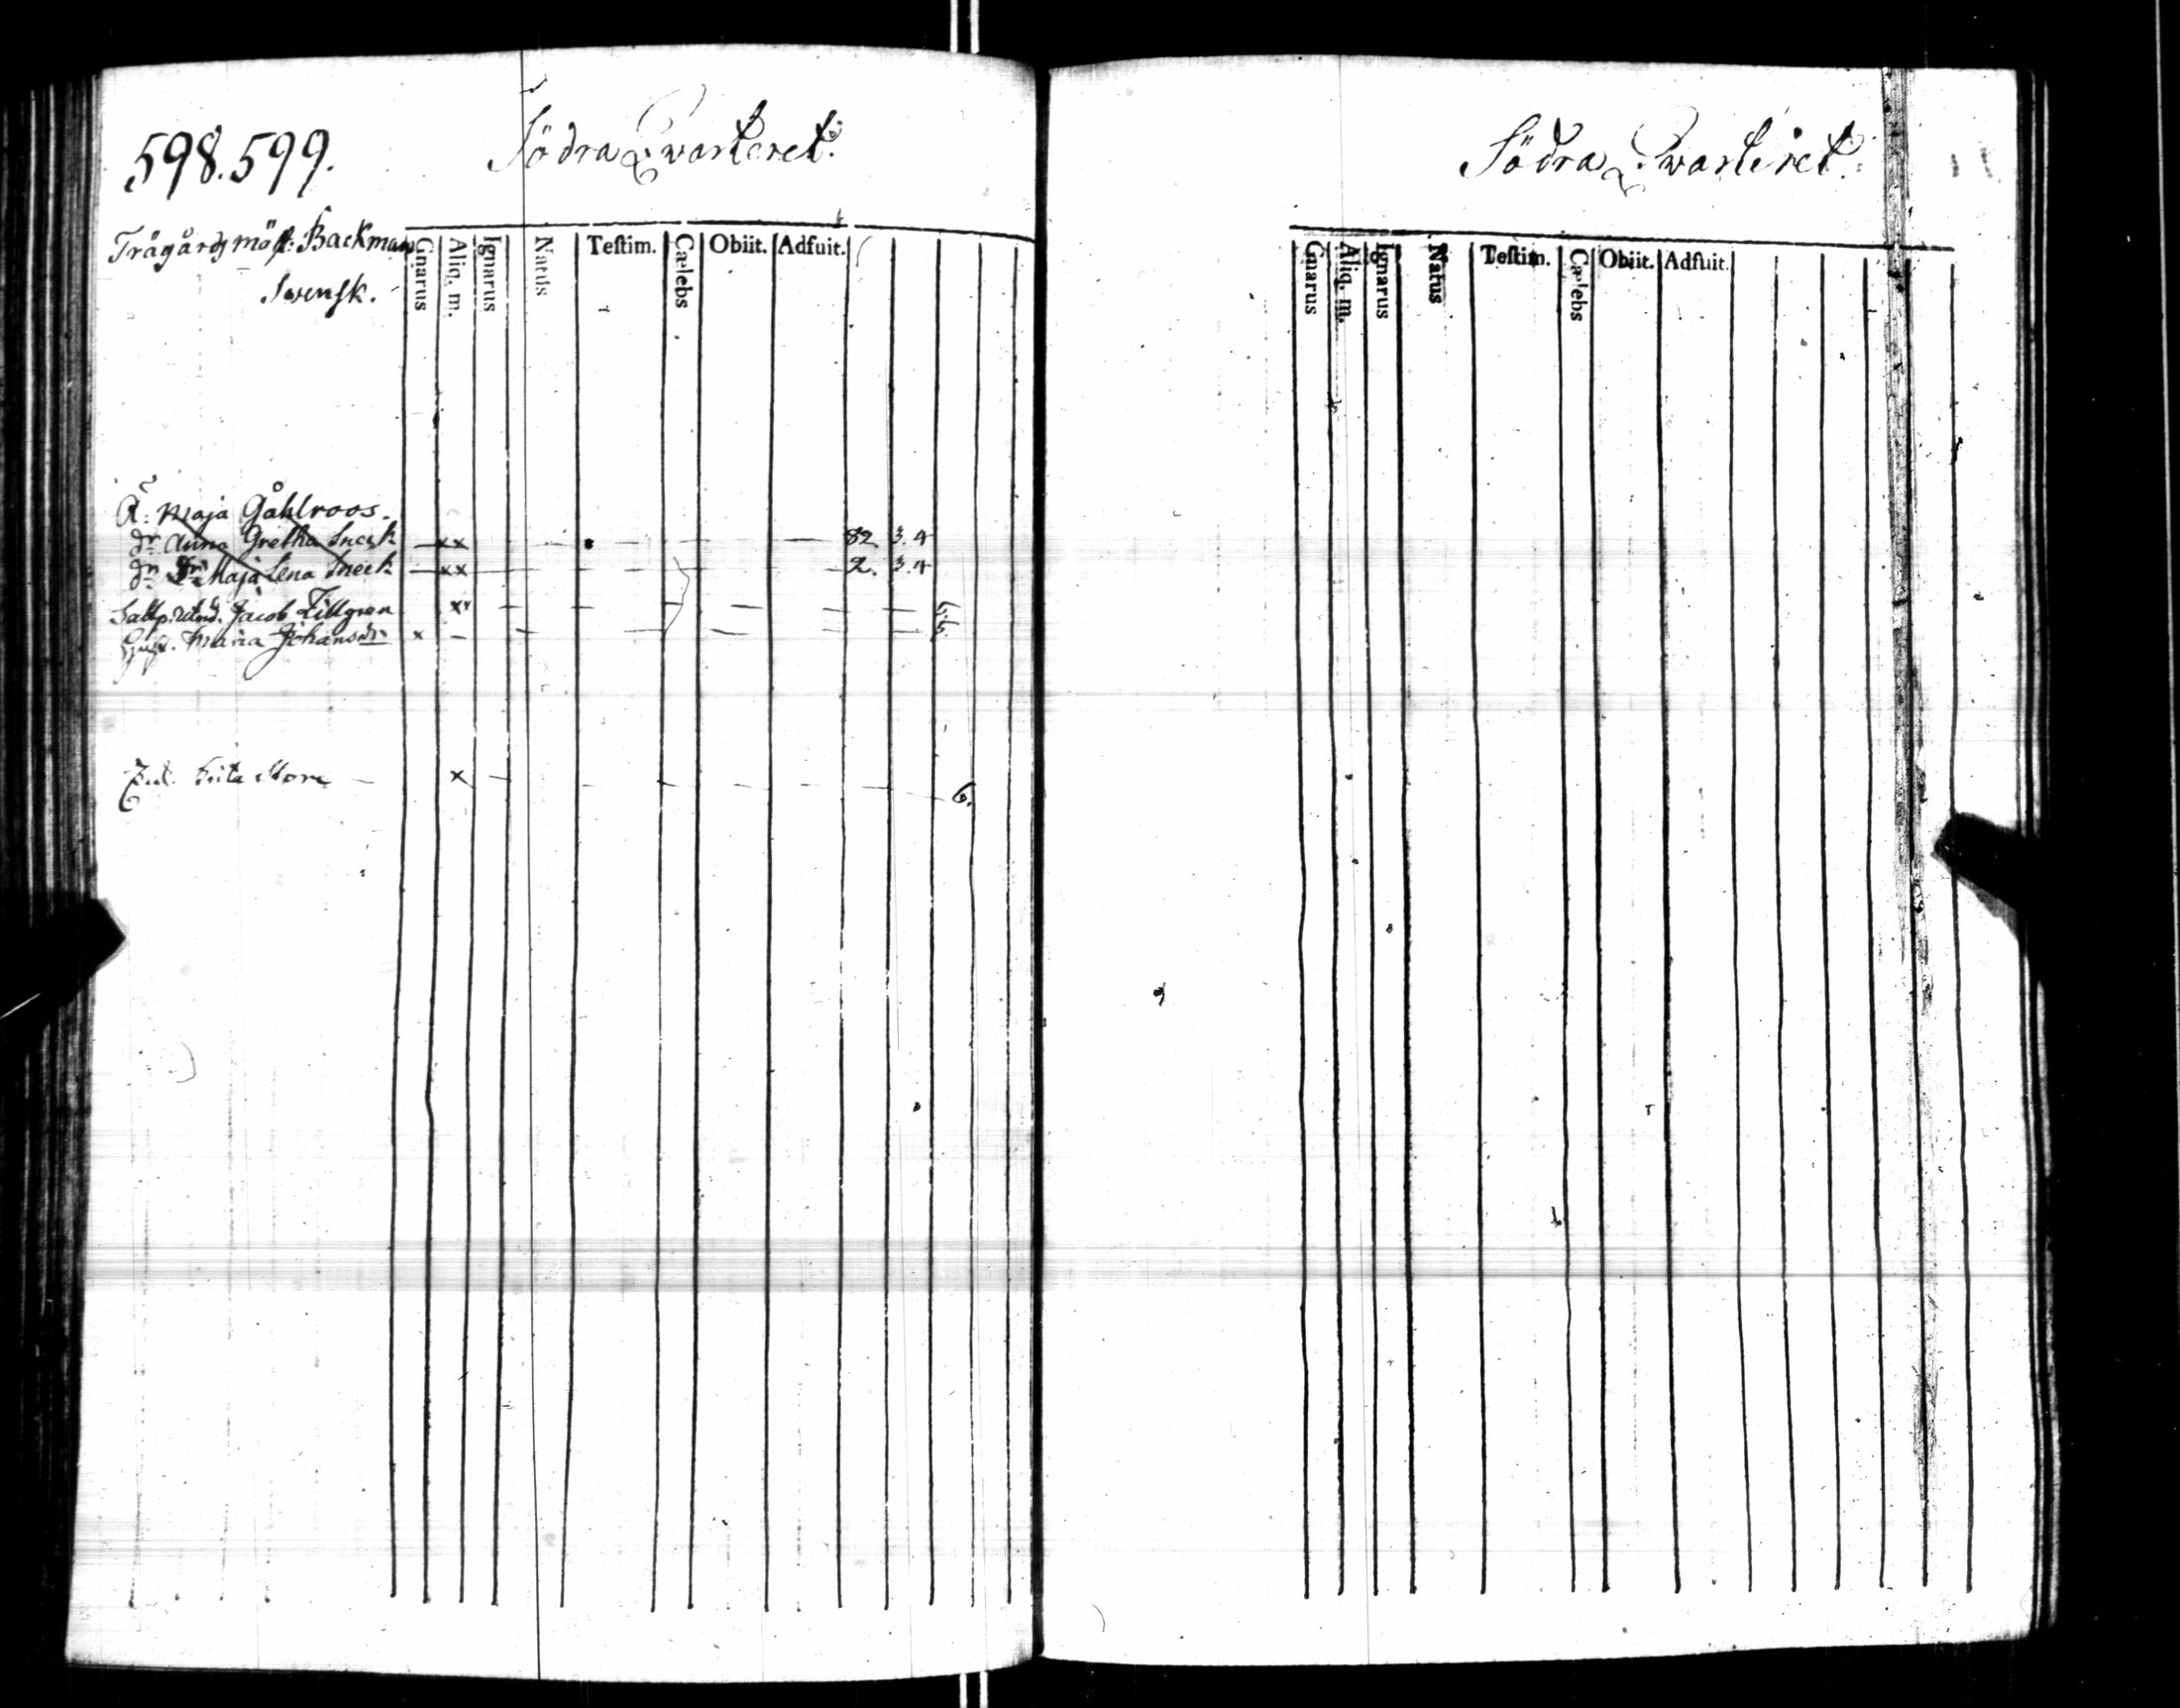 598.599.
Södra Qvarteret.
Trägårdsmäst: Backman
Swensk.
Gnarus Aliq. m. Ignarus Natus Teſtim. Cælebs Obiit. Adfuit.
Maja Gåhlroos.
Anna Gretha Sneck — xx — — — — 82 3.4
Maja Lena Sneck — xx — — — — 2. 3.4
Jacob Tillgren xx — — — — — —
Maria Johansdr x — — — — — —
Brita x — — — — — — 6.
Södra Qvarteret.
Gnarus Aliq. m. Ignarus Natus Teſtim. Cælebs Obiit. Adfuit.